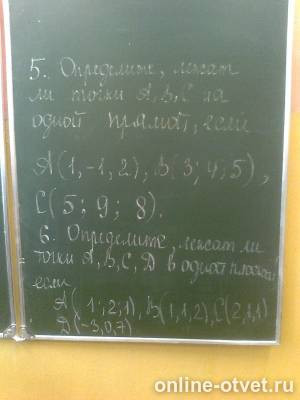 5. Определите, лежат
ли точки A, B, C на
одной прямой, если
A(1,-1,2), B(3;4;5),
C(5; 9; 8).
6. Определите, лежат ли
точки A, B, C, D в одной
если
A( 1;2;1), B(1,1,2), C(2,1,1)
D(-3,0,7)
online-otvet.ru